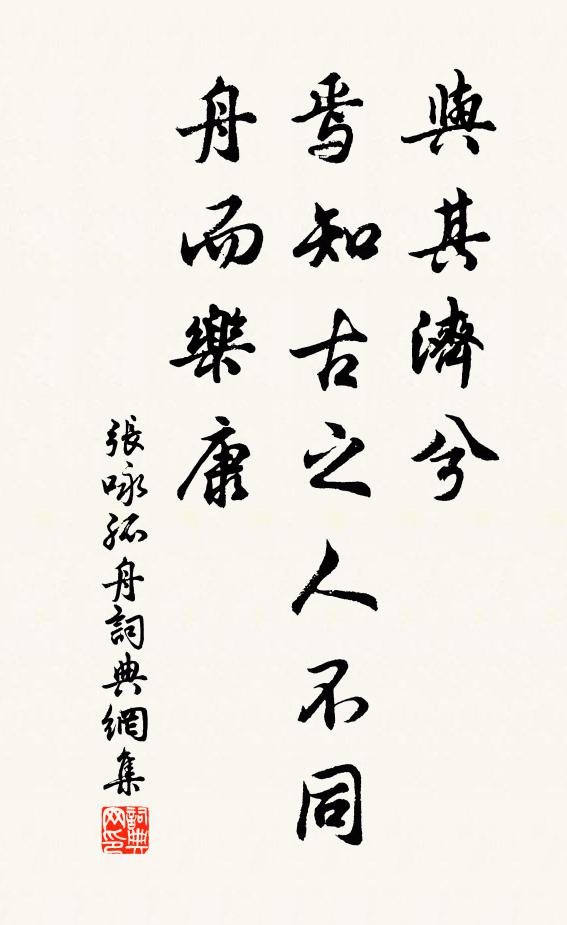 與其濟兮
焉知古之人不同
舟而樂康
張咏孤舟詞典網集
詞典网印